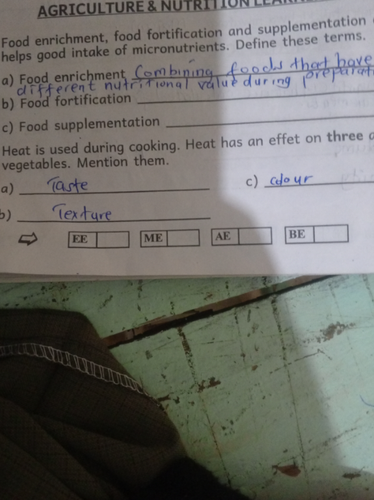 AGRICULTURE & NUTRITION
Food enrichment, food fortification and supplementation
helps good intake of micronutrients. Define these terms.
a) Food enrichment Combining foods that have
different nutritional value during
b) Food fortification
c) Food supplementation
Heat is used during cooking. Heat has an effet on three
vegetables. Mention them.
a) Taste c) colour
b) Texture
EE ME AE BE